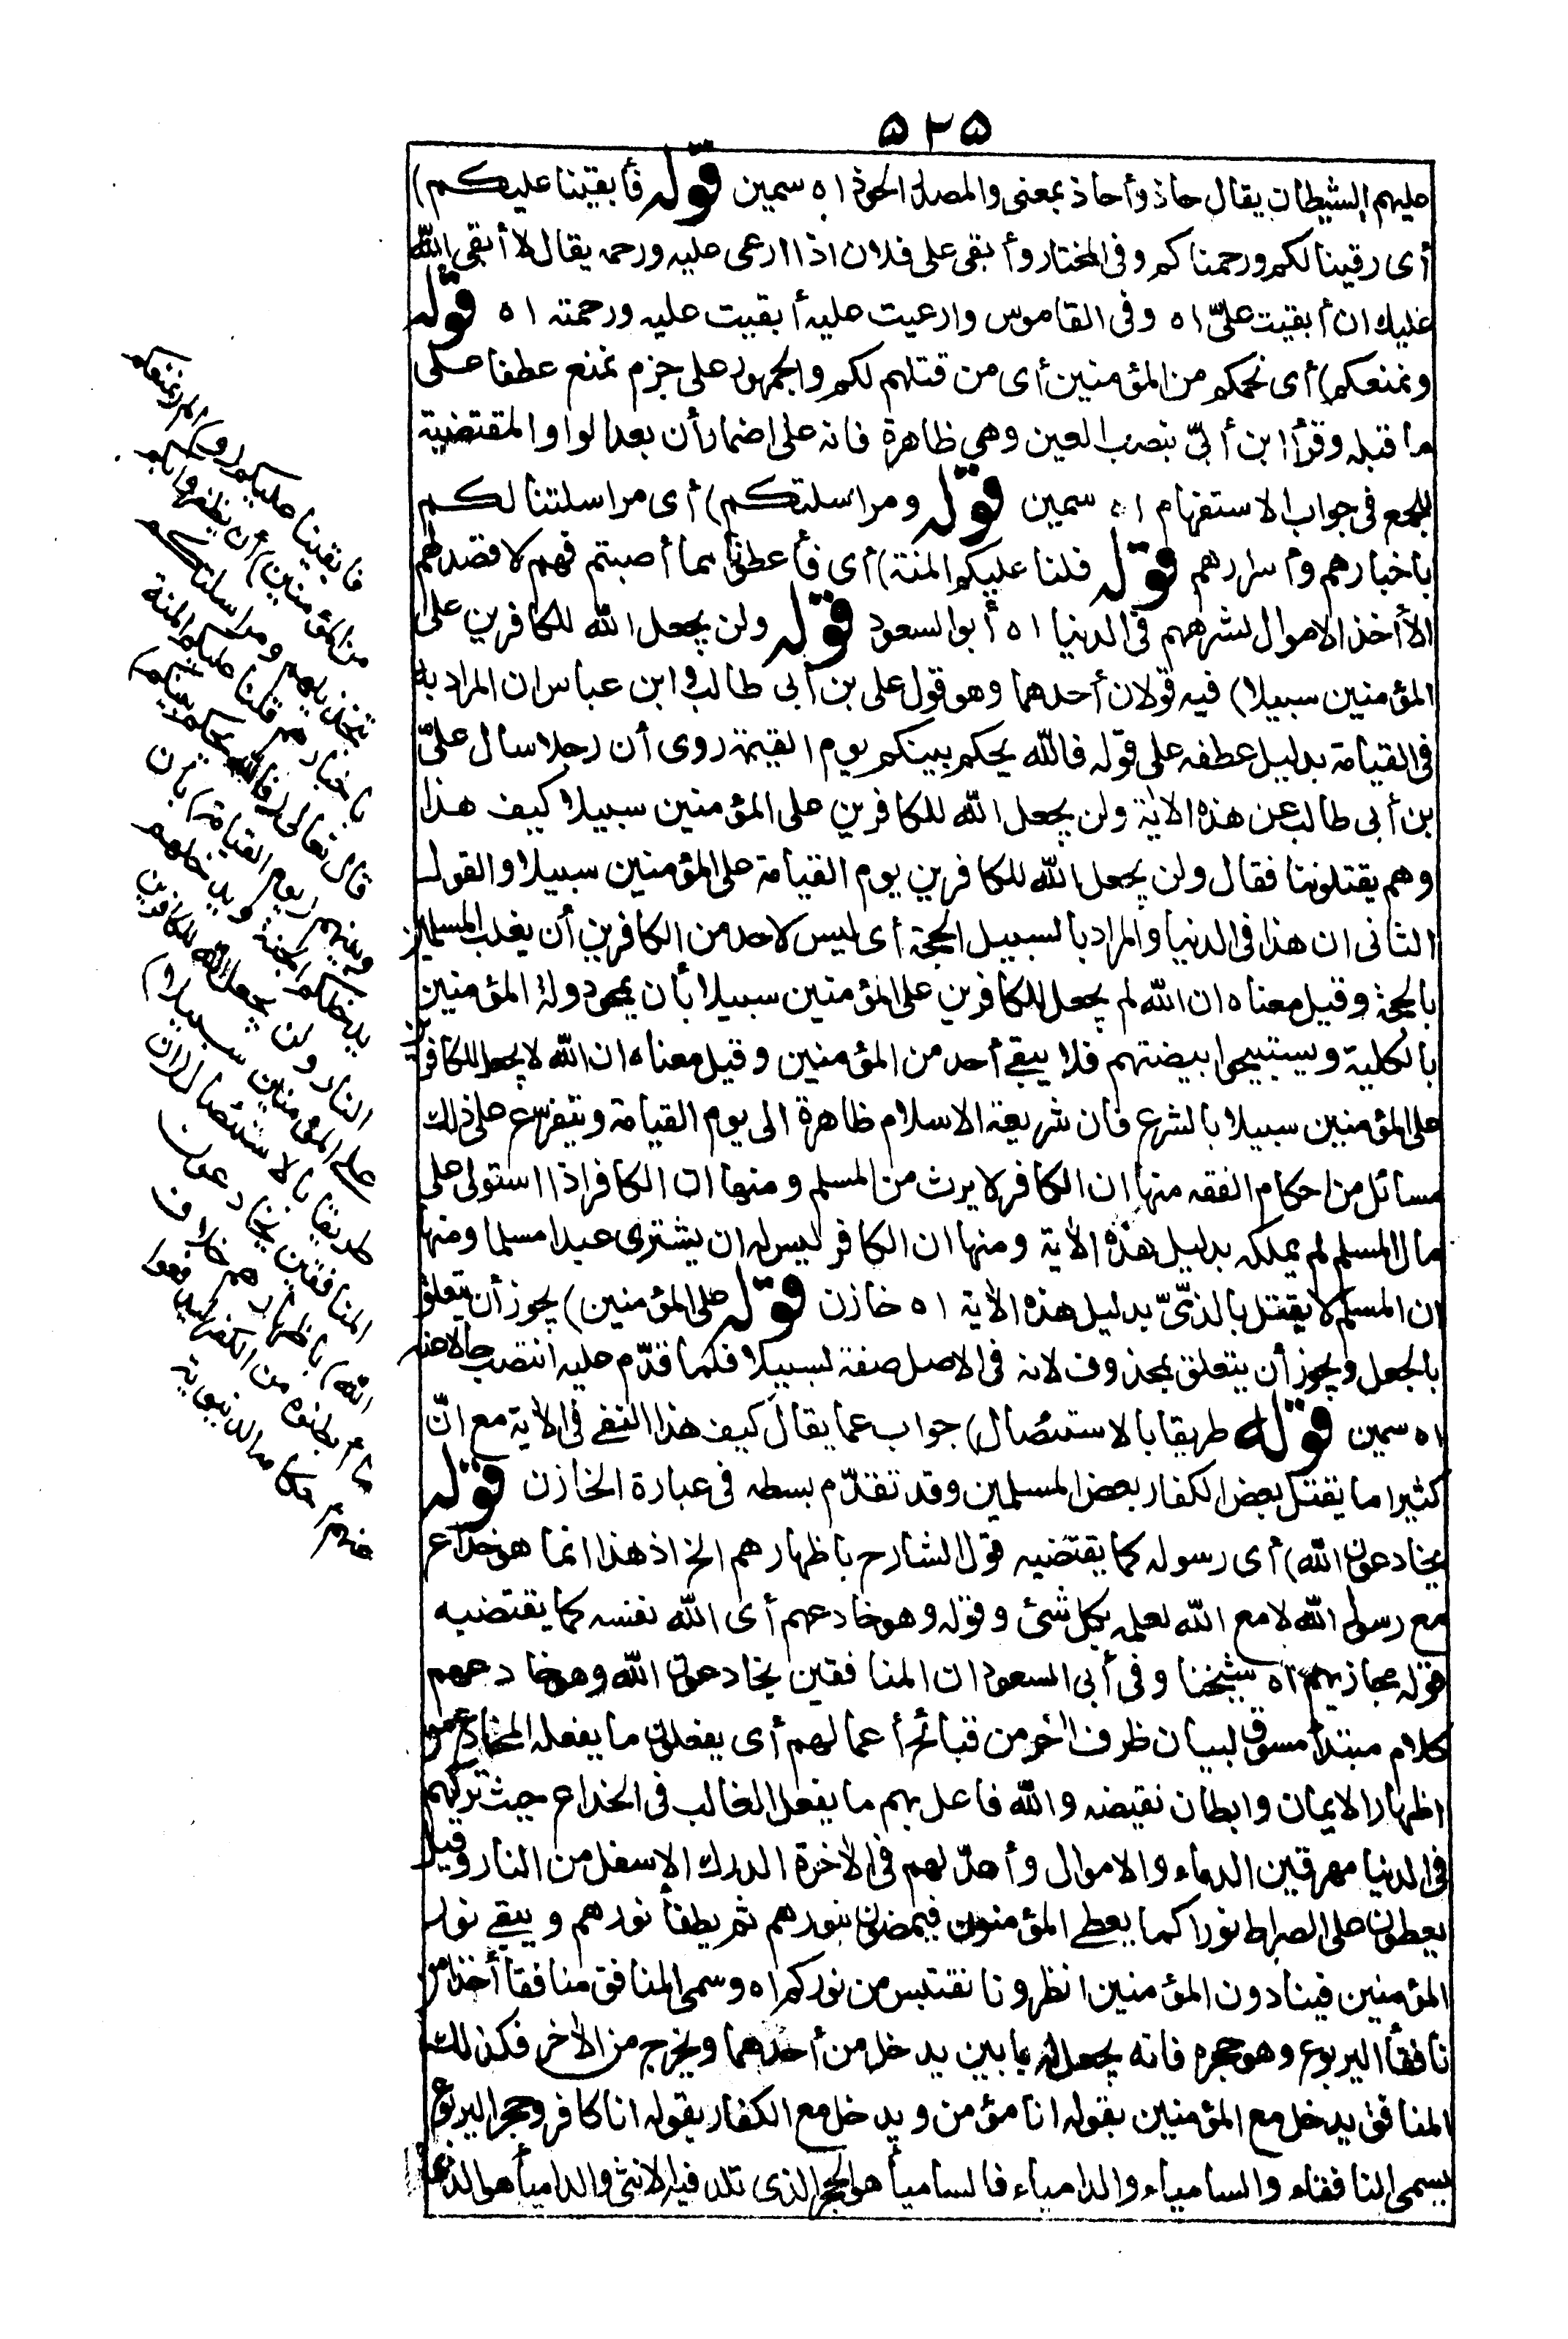 ٥٢٥
عليهم الشيطان يقال حاذ وأحاذ بمعنى والمصدر الحوذ ا ه سمين قوله فأبقينا عليكم)
أى رقينا لكم ورحمناكم وفى المختار وأبقى على فلان اذا ارعى عليه ورحمه يقال لا أبقى الله
عليك ان أبقيت علىّ ا ه وفى القاموس وارعيت عليه أبقيت عليه ورحمته ا ه قوله
ونمنعكم) أى نحمكم من المؤمنين أى من قتلهم لكم والجمهور على جزم نمنع عطفا على
ما قبله وقرأ ابن أبىّ بنصب العين وهى ظاهرة فانه على اضمار أن بعد الواو المقتضية
للجمع فى جواب الاستفهام ا ه سمين قوله ومراسلتكم) أى مراسلتنا لكم
باخبارهم وأسرارهم قوله فلنا عليكم المنة) أى فأعطونا مما أصبتم فهم لا قصد لهم
الا أخذ الاموال لشرههم فى الدنيا ا ه أبو السعود قوله ولن يجعل الله للكافرين على
المؤمنين سبيلا) فيه قولان أحدهما وهو قول على بن أبى طالب وابن عباس ان المراد به
فى القيامة بدليل عطفه على قوله فالله يحكم بينكم يوم القيمة روى أن رجلا سأل علىّ
بن أبى طالب عن هذه الاٰية ولن يجعل الله للكافرين على المؤمنين سبيلا كيف هذا
وهم يقتلوننا فقال ولن يجعل الله للكافرين يوم القيامة على المؤمنين سبيلا والقول
الثانى ان هذا فى الدنيا والمراد بالسبيل الحجة أى ليس لاحد من الكافرين أن يغلب المسلمين
بالحجة وقيل معناه ان الله لم يجعل للكافرين على المؤمنين سبيلا بأن يمحو دولة المؤمنين
بالكلية ويستبيحوا بيضتهم فلا يبقى أحد من المؤمنين وقيل معناه ان الله لا يجعل للكافرين
على المؤمنين سبيلا بالشرع فان شريعة الاسلام ظاهرة الى يوم القيامة ويتفرع على ذلك
مسائل من احكام الفقه منها ان الكافر لا يرث من المسلم ومنها ان الكافر اذا استولى على
مال المسلم لم يملكه بدليل هذه الاٰية ومنها ان الكافر ليس له ان يشترى عبدا مسلما ومنها
ان المسلم لا يقتل بالذمىّ بدليل هذه الاٰية ا ه خازن قوله على المؤمنين) يجوز أن يتعلق
بالجعل ويجوز أن يتعلق بمحذوف لانه فى الاصل صفة لسبيلا فلما قدّم عليه انتصب حالا عنه
ا ه سمين قوله طريقا بالاستئصال) جواب عما يقال كيف هذا النفى فى الاٰية مع انّ
كثيرا ما يقتل بعض الكفار بعض المسلمين وقد تقدّم بسطه فى عبارة الخازن قوله
يخادعون الله) أى رسوله كما يقتضيه قول الشارح باظهارهم الخ اذ هذا انما هو خداع
مع رسول الله لا مع الله لعلمه بكل شئ وقوله وهو خادعهم أى الله نفسه كما يقتضيه
قوله مجازيهم ا ه شيخنا وفى أبى السعود ان المنافقين يخادعون الله وهو خادعهم
كلام مبتدأ مسوق لبيان طرف اٰخر من قبائح أعمالهم أى يفعلون ما يفعله المخادع من
اظهار الايمان وابطان نقيضه والله فاعل بهم ما يفعل الغالب فى الخداع حيث تركهم
فى الدنيا مهرقين الدماء والاموال وأعدّ لهم فى الاٰخرة الدرك الاسفل من النار وقيل
يعطون على الصراط نورا كما يعطى المؤمنون فيمضون بنورهم ثم يطفأ نورهم ويبقى نور
المؤمنين فينادون المؤمنين انظرونا نقتبس من نوركم ا ه وسمى المنافق منافقا أخذا من
نافقأ اليربوع وهو جحره فانه يجعل له بابين يدخل من أحدهما ويخرج من الاٰخر فكذلك
المنافق يدخل مع المؤمنين بقوله انا مؤمن ويدخل مع الكفار بقوله انا كافر وجحر اليربوع
يسمى النافقاء والسامياء والدامياء فالسامياء هو الجحر الذى تلد فيه الانثى والدامياء هو الذى
فابقينا عليكم (و) ألم (نمنعكم
من المؤمنين) أن يظفروا بكم
بتخذيلهم ومراسلتكم
باخبارهم فلنا عليكم المنة
قال تعالى (فالله يحكم بينكم)
وبينهم (يوم القيامة) بأن
يدخلكم الجنة ويدخلهم
النار ولن يجعل الله للكافرين
على المؤمنين سبيلا)
طريقا بالاستئصال (ان
المنافقين يخادعون
الله) باظهارهم خلاف
ما أبطنوه من الكفر ليدفعوا
عنهم أحكامه الدنيوية